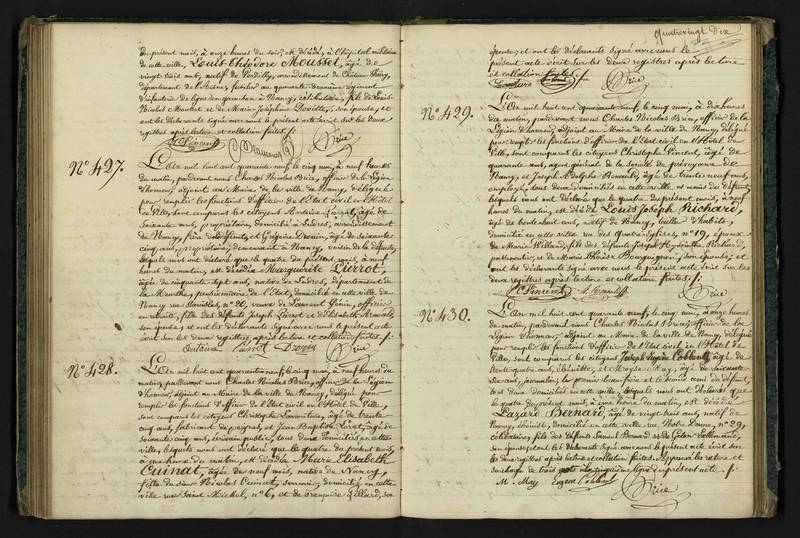 du présent mois, à onze heures du soir, est décédé, à l'hôpital militaire
de cette ville, Louis Théodore Mousset, âgé de
vingt trois ans, natif de arrondissement de Château Thierry,
département de l'Aisne, fusilier au quarante deuxième régiment
d'infanterie de ligne en garnison à Nancy, célibataire, fils de Louis
Nicolas Mousset et de Marie Joséphine son épouse; et
ont les déclarants signé avec nous le présent acte écrit sur les deux
registres après lecture et collation faites ./.
Brice
N° 427.
L'An mil huit cent quarante neuf, le cinq mai, à neuf heures
du matin, pardevant nous Charles Nicolas Brice, officier de la Légion
d'honneur, adjoint au Maire de la ville de Nancy, délégué
pour remplir les fonctions d'officier de l'Etat civil en l'Hôtel
de Ville, sont comparus les citoyens Antoine Pierrot, âgé de
soixante ans, propriétaire, domicilié à Ludres, arrondissement
de Nancy, frère de la défunte, et Grégoire Drouin, âgé de soixante
cinq ans, propriétaire, demeurant à Nancy, voisin de la défunte,
lesquels nous ont déclaré que le quatre du présent mois, à neuf
heures du matin, est décédée Marguerite Pierrot,
âgée de cinquante sept ans, native de Ludres, département de
la Meurthe, pensionnaire de l'Etat, domiciliée en cette ville de
Nancy rue Stanislas, n° 26, veuve de Laurent Génin, officier
en retraite, fille des défunts Joseph Pierrot et d'Elisabeth
son épouse; et ont les déclarants signé avec nous le présent acte
écrit sur les deux registres, après lecture et collation faites ./.
Antoine Pierrot Drouin Brice
N° 428.
L'An mil huit cent quarante neuf, le cinq mai, à neuf heures du
matin, pardevant nous Charles Nicolas Brice, officier de la Légion
d'honneur, adjoint au Maire de la ville de Nancy, délégué pour
remplir les fonctions d'officier de l'Etat civil en l'Hôtel de Ville,
sont comparus les citoyens Christophe âgé de trente
cinq ans, fabricant de peignes, et Jean Baptiste âgé de
soixante cinq ans, écrivain public, tous deux domiciliés en cette
ville, lesquels nous ont déclaré que le quatre du présent mois,
à heures du matin, est décédée Marie Elisabeth
Cuinat, âgée de neuf mois, native de Nancy,
fille du sieur Nicolas Cuinat, serrurier, domicilié en cette
ville rue Saint Michel, n° 6, et de Françoise son
Quatrevingt Dix
épouse; et ont les déclarants signé avec nous le
présent acte écrit sur les deux registres après lecture
et collation faites ./.
Brice
N° 429.
L'An mil huit cent quarante neuf, le cinq mai, à dix heures
du matin, pardevant nous Charles Nicolas Brice, officier de la
Légion d'honneur, adjoint au Maire de la ville de Nancy, délégué
pour remplir les fonctions d'officier de l'Etat civil en l'Hôtel de
Ville, sont comparus les citoyens Christophe Vincent, âgé de
quarante ans, agent général de la Société de prévoyance de
Nancy, et Joseph Adolphe âgé de trente neuf ans,
employé, tous deux domiciliés en cette ville et amis du défunt,
lesquels nous ont déclaré que le quatre du présent mois, à neuf
heures du matin, est décédé Louis Joseph Richard,
âgé de ans, natif de Nancy, tailleur d'habits,
domicilié en cette ville rue des Quatre Eglises, n° 19, époux
de Marie fils des défunts Joseph Hyacinthe Richard,
et de Marie Thérèse Bourguignon, son épouse; et
ont les déclarants signé avec nous le présent acte écrit sur les
deux registres après lecture et collation faites ./.
Vincent Brice
N° 430.
L'An mil huit cent quarante neuf, le cinq mai, à onze heures
du matin, pardevant nous Charles Nicolas Brice, officier de la
Légion d'honneur, adjoint au Maire de la ville de Nancy, délégué
pour remplir les fonctions d'officier de l'Etat civil en l'Hôtel de
Ville, sont comparus les citoyens Joseph Eugène Coblentz, âgé de
trente quatre ans, ébéniste, et Moyse May, âgé de soixante
six ans, journalier, le premier beau frère et le second ami du défunt,
tous deux domiciliés en cette ville, lesquels nous ont déclaré que
le quatre du présent mois, à une heure du matin, est décédé
Lazard Bernard, âgé de vingt trois ans, natif de
Nancy, ébéniste, domicilié en cette ville rue Notre Dame, n° 29,
célibataire, fils des défunts Samuel Bernard et de
son épouse; et ont les déclarants signé avec nous le présent acte écrit sur
les deux registres après lecture et collation faites. Approuvé la rature et
surcharge de trois mots présent acte ./.
M. May Eugène Coblentz Brice